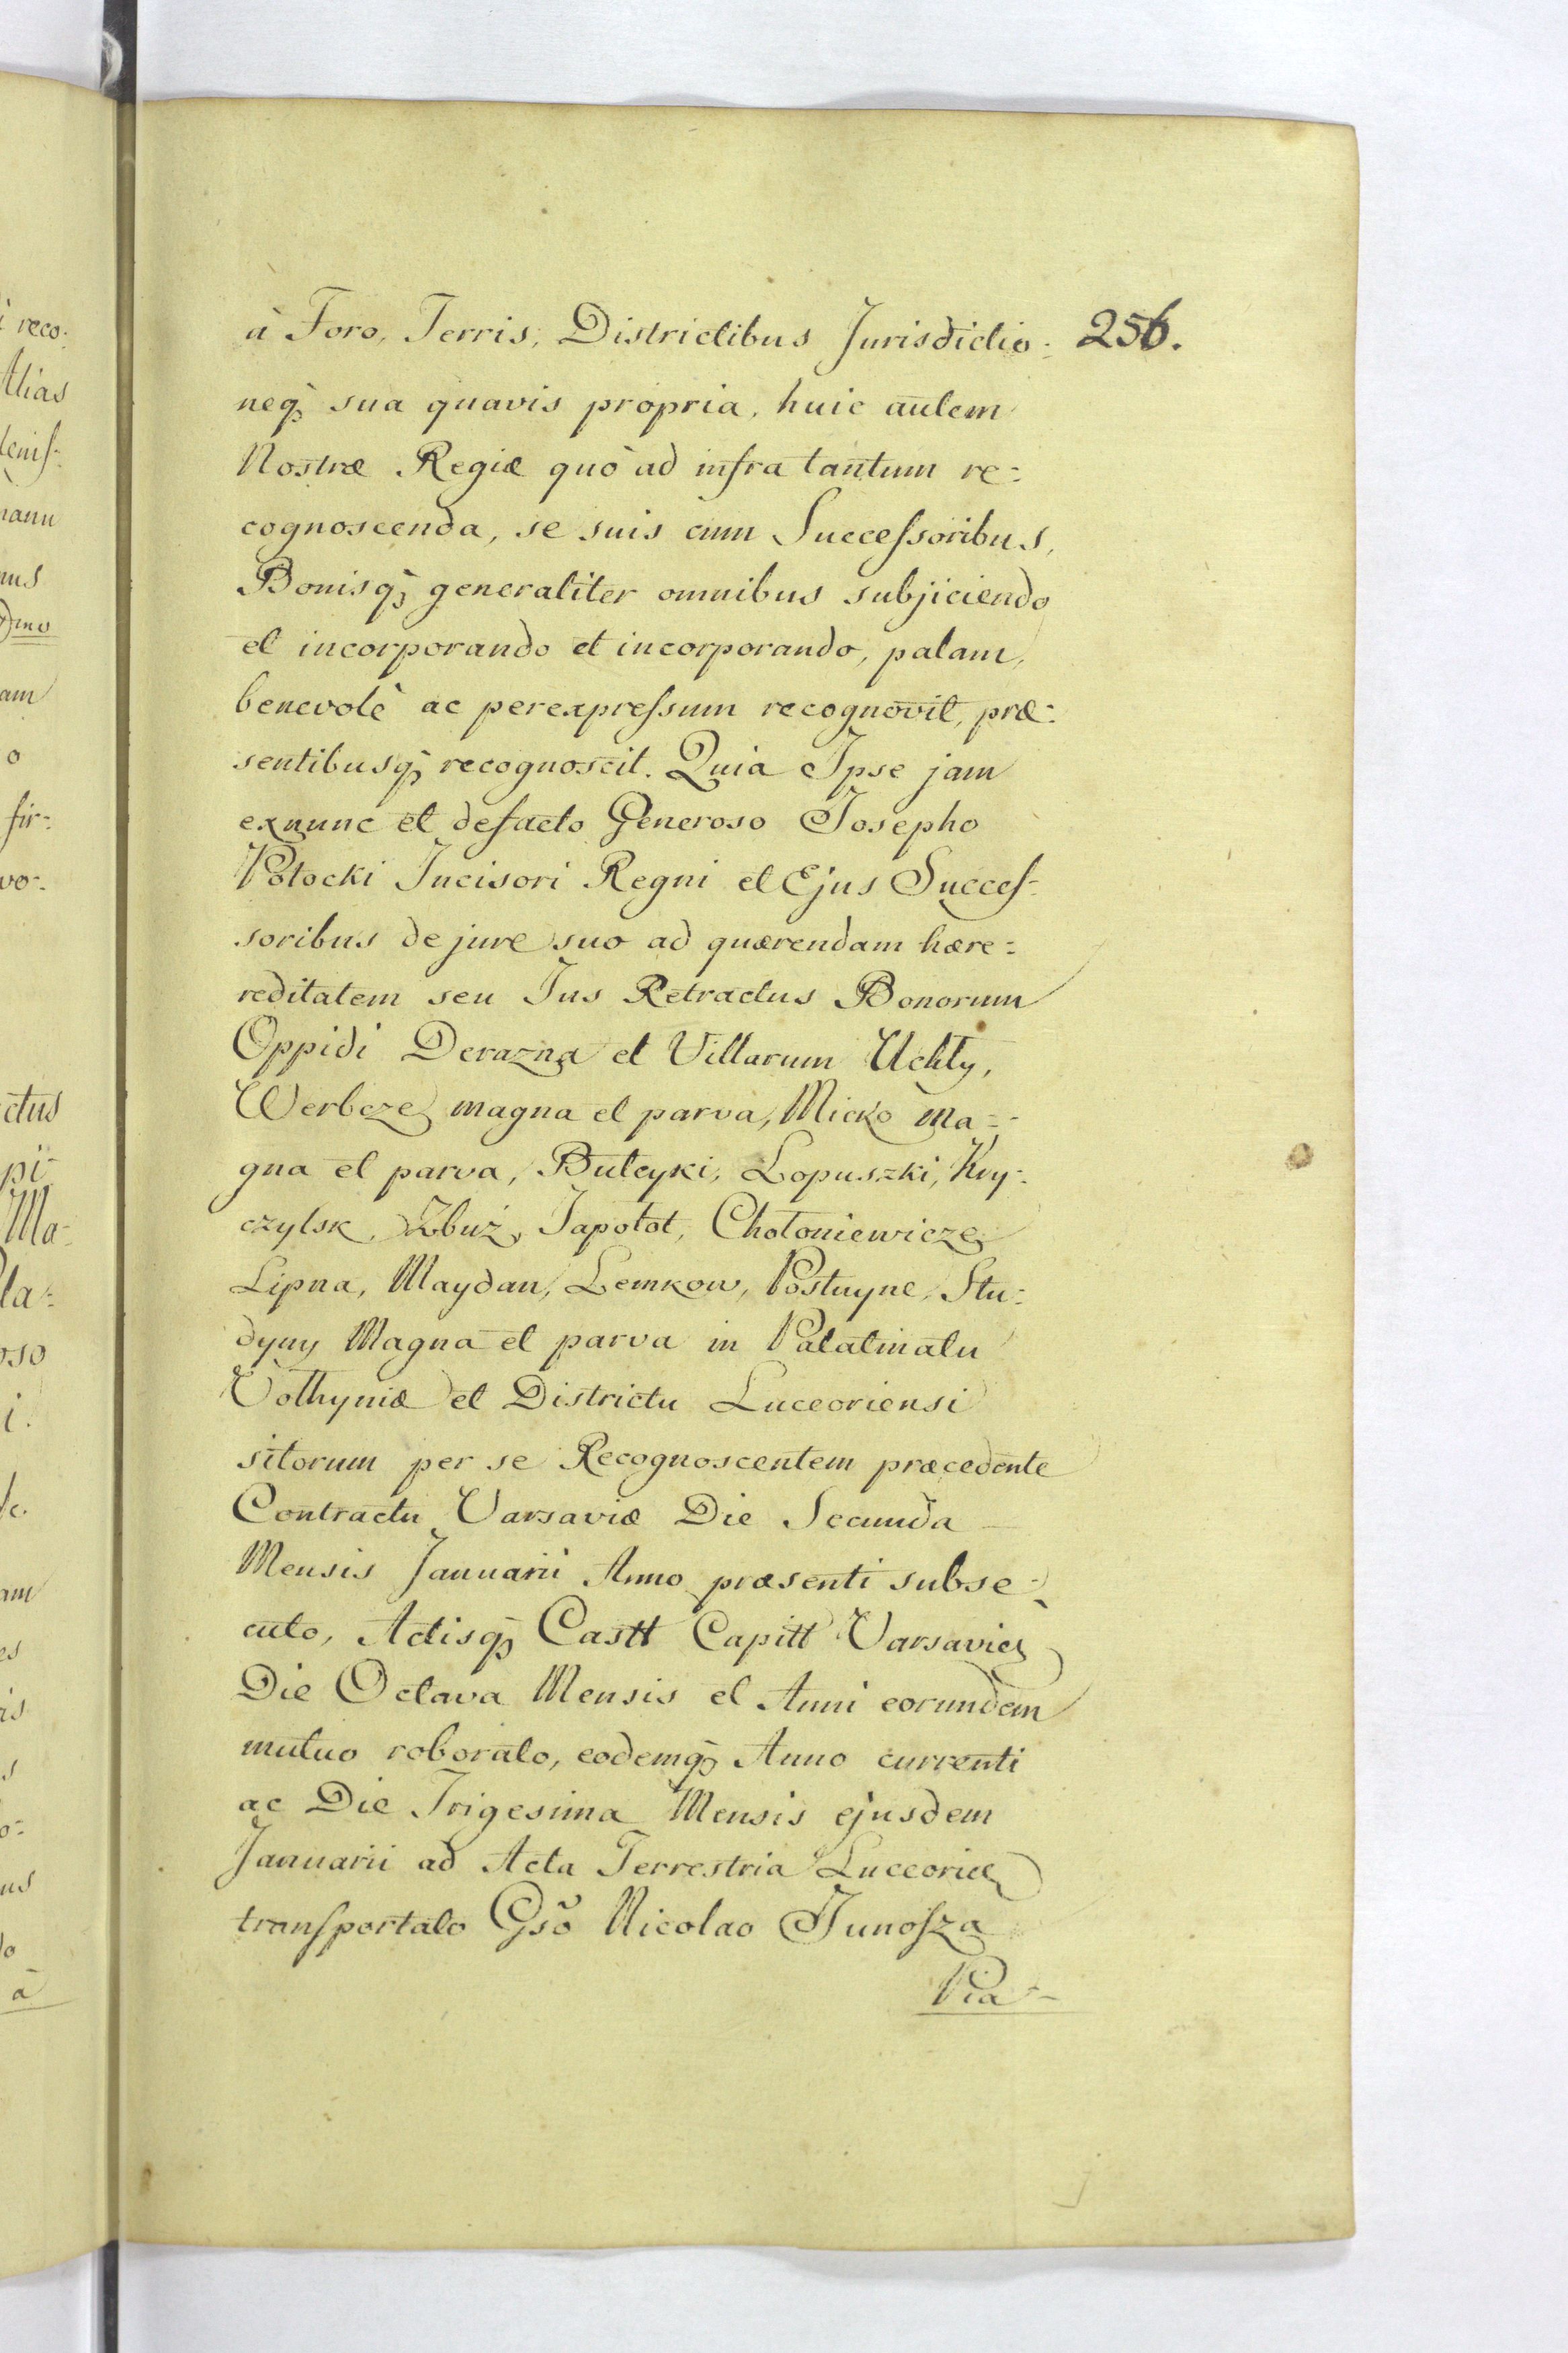 à Foro, Terris, Districtibus Jurisdictio= 256.
neq; sua quavis propria, huic autem
Nostræ Regiæ quò ad infra tantum re=
cognoscenda, se suis cum Succeſsoribus,
Bonisq; generaliter omnibus subjiciendo
et incorporando et incorporando, palam,
benevolè ac perexpreſsum recognovit, præ=
sentibusq; recognoscit. Quia Ipse jam
exnunc et defacto Generoso Josepho
Potocki Incisori Regni et Ejus Succeſ=
soribus de jure suo ad quærendam hære=
reditatem seu Jus Retractus Bonorum
Oppidi Derazna et Villarum Uchły,
Werbcze magna et parva, Micko Ma=
gna et parva, Buteyki, Lopuszki, Kry=
czylsk, Zbuż, Japołot, Chotoniewicze
Lipna, Maydan, Lemkow, Postuyne, Stu=
dyny Magna et parva in Palatinatu
Volhyniæ et Districtu Luceoriensi
sitorum per se Recognoscentem præcedente
Contractu Varsaviæ Die Secunda
Mensis Januarii Anno præsenti subse=
cuto, Actisq; Castt Capitt Varsavien
Die Octava Mensis et Anni eorundem
mutuo roborato, eodemq; Anno currenti
ac Die Trigesima Mensis ejusdem
Januarii ad Acta Terrestria Luceorien
tranſportato Gsõ Nicolao Junoſza
Pia=
i reco=
Alias
manu
am
o
fir=
vo=
ctus
pi=
Ma=
la=
oso
i.
am
es
is
s
o=
us
do
à